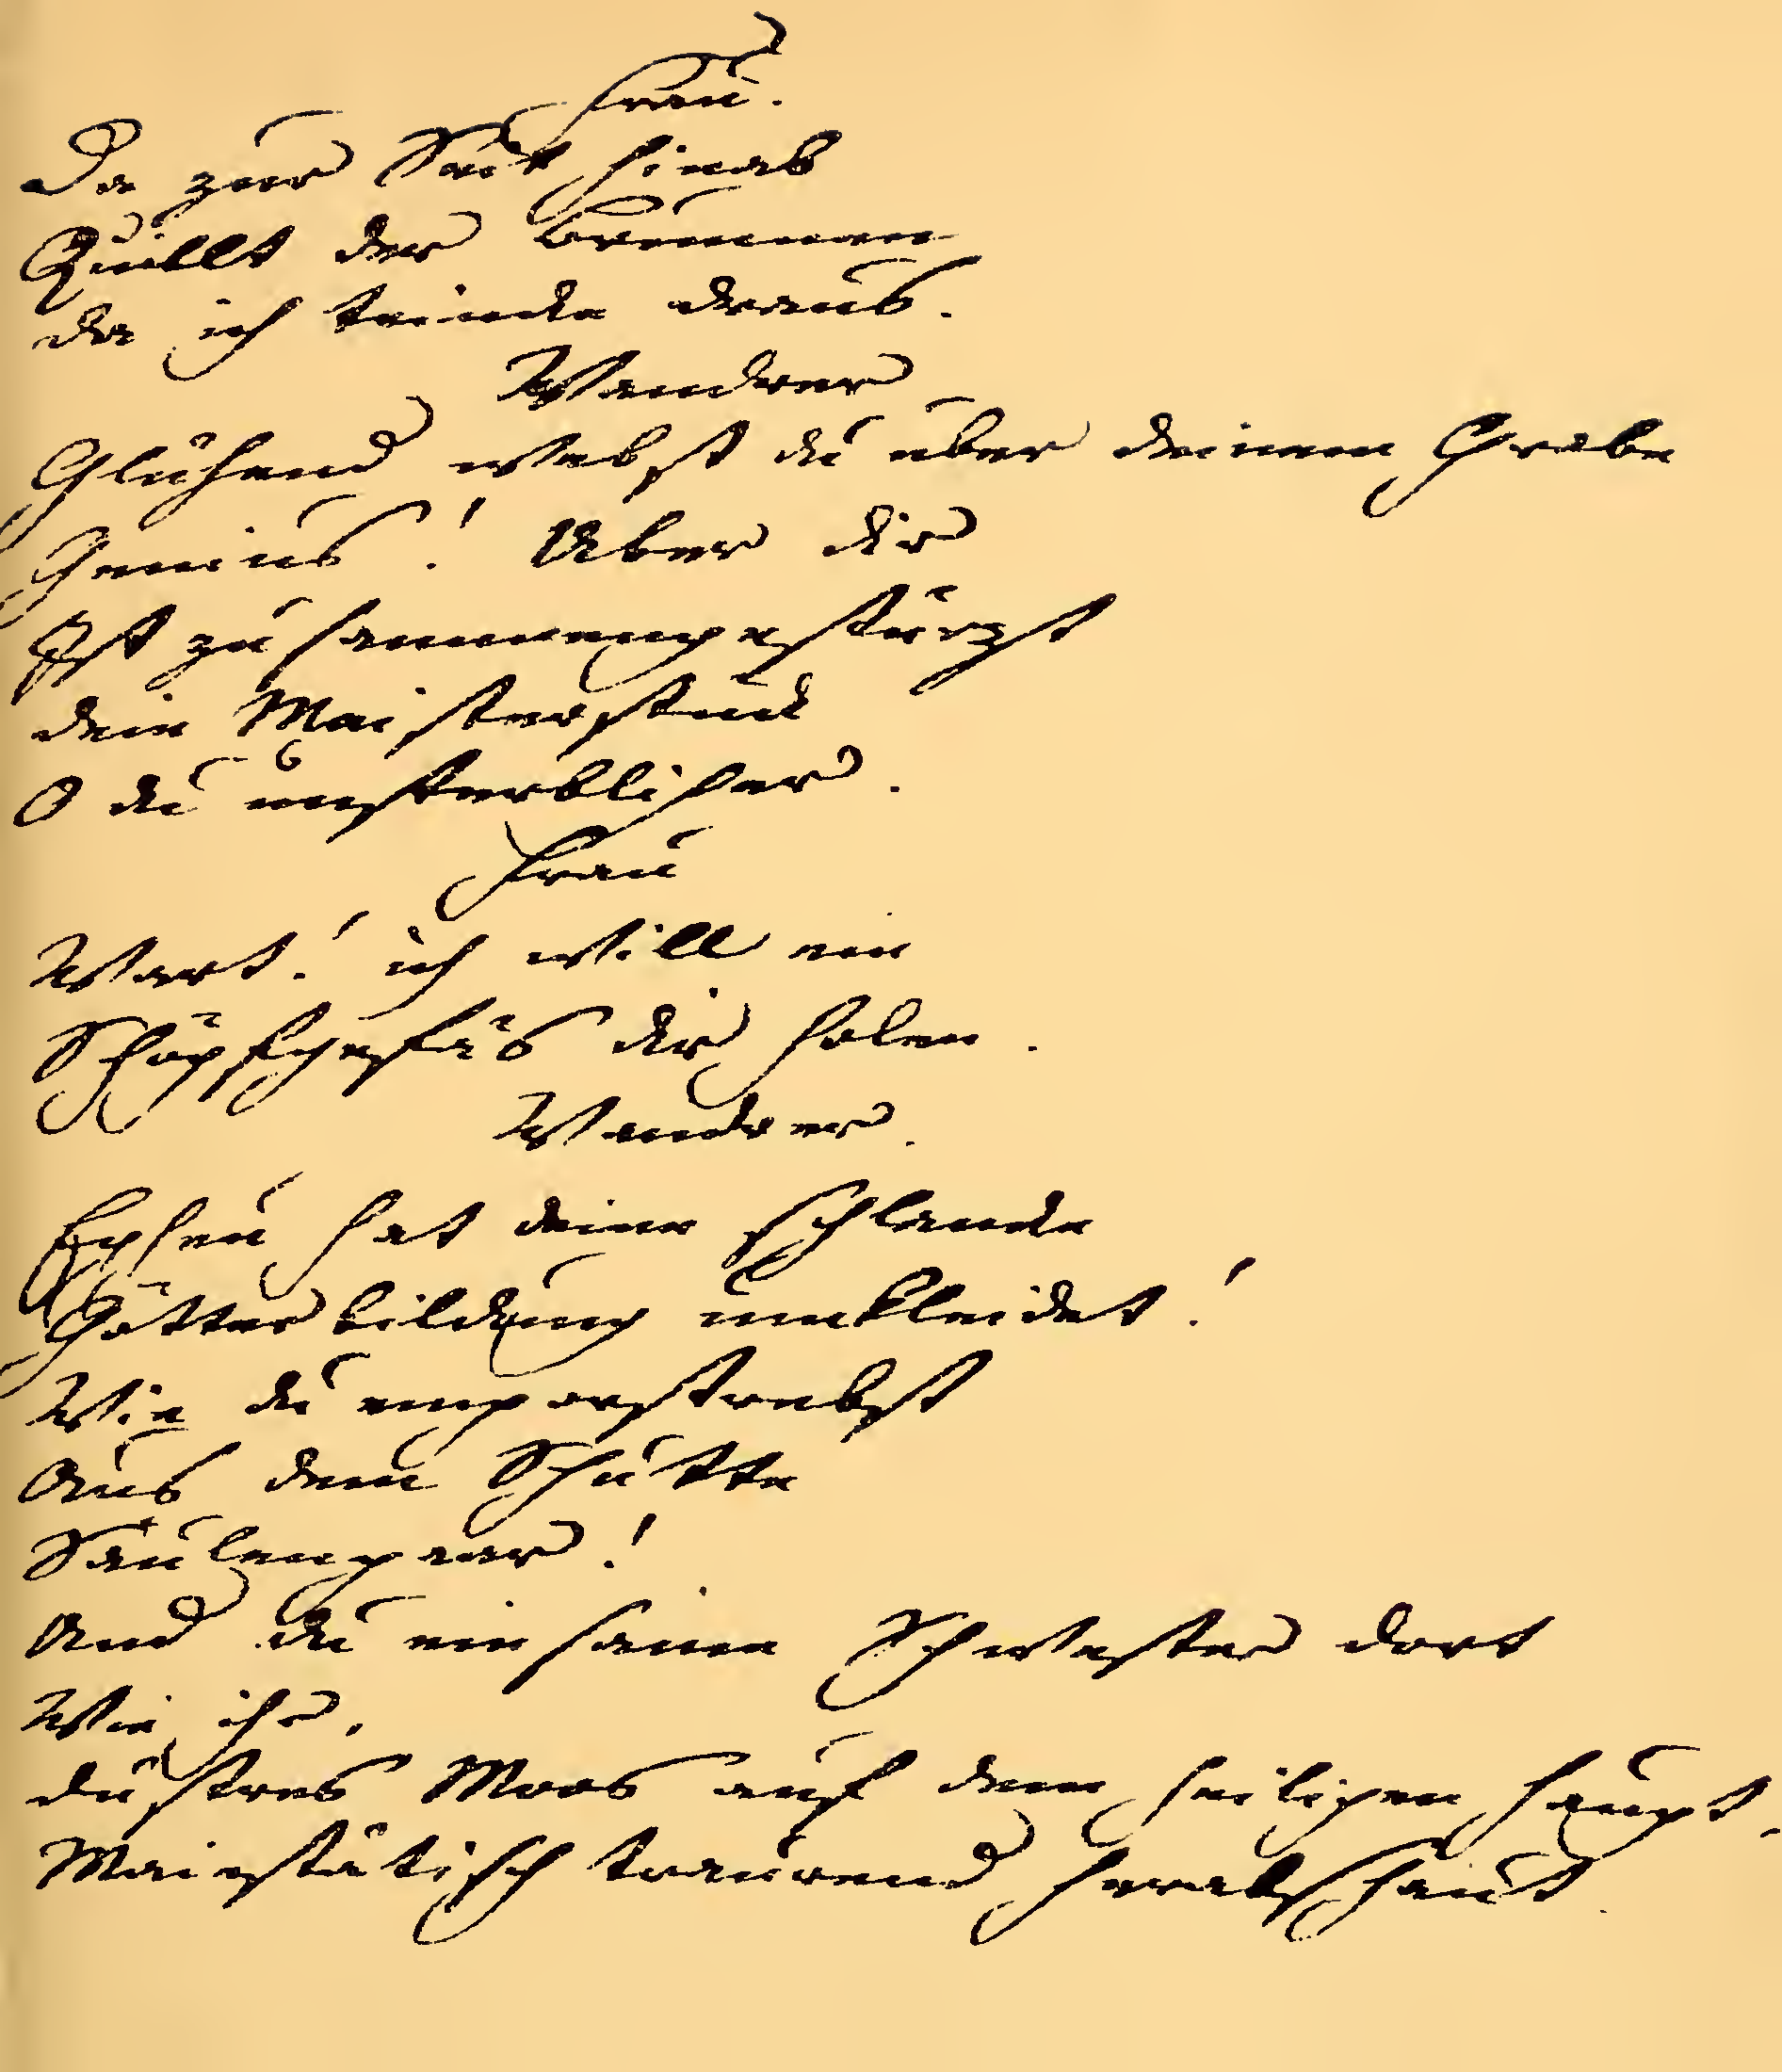 Frau.
Da zur Seit hinab
Quillt der Brunnen
da ich trincke draus.
Wandrer
Glühend webst du über deinem Grabe
Genius! Über dir
Ist zusammengestürzt
dein Meisterstück
O du unsterblicher.
Frau
Wart! ich will ein
Schöpfgefäs dir holen.
Wandrer.
Epheu hat deine schlancke
Götterbildung umkleidet!
Wie du emporstrebst
Aus dem Schutte
Säulenpaar!
Und du einsame Schwester dort
Wie ihr,
düstres Moos auf dem heiligen Haupt,
Maiestätisch traurend herabschaut